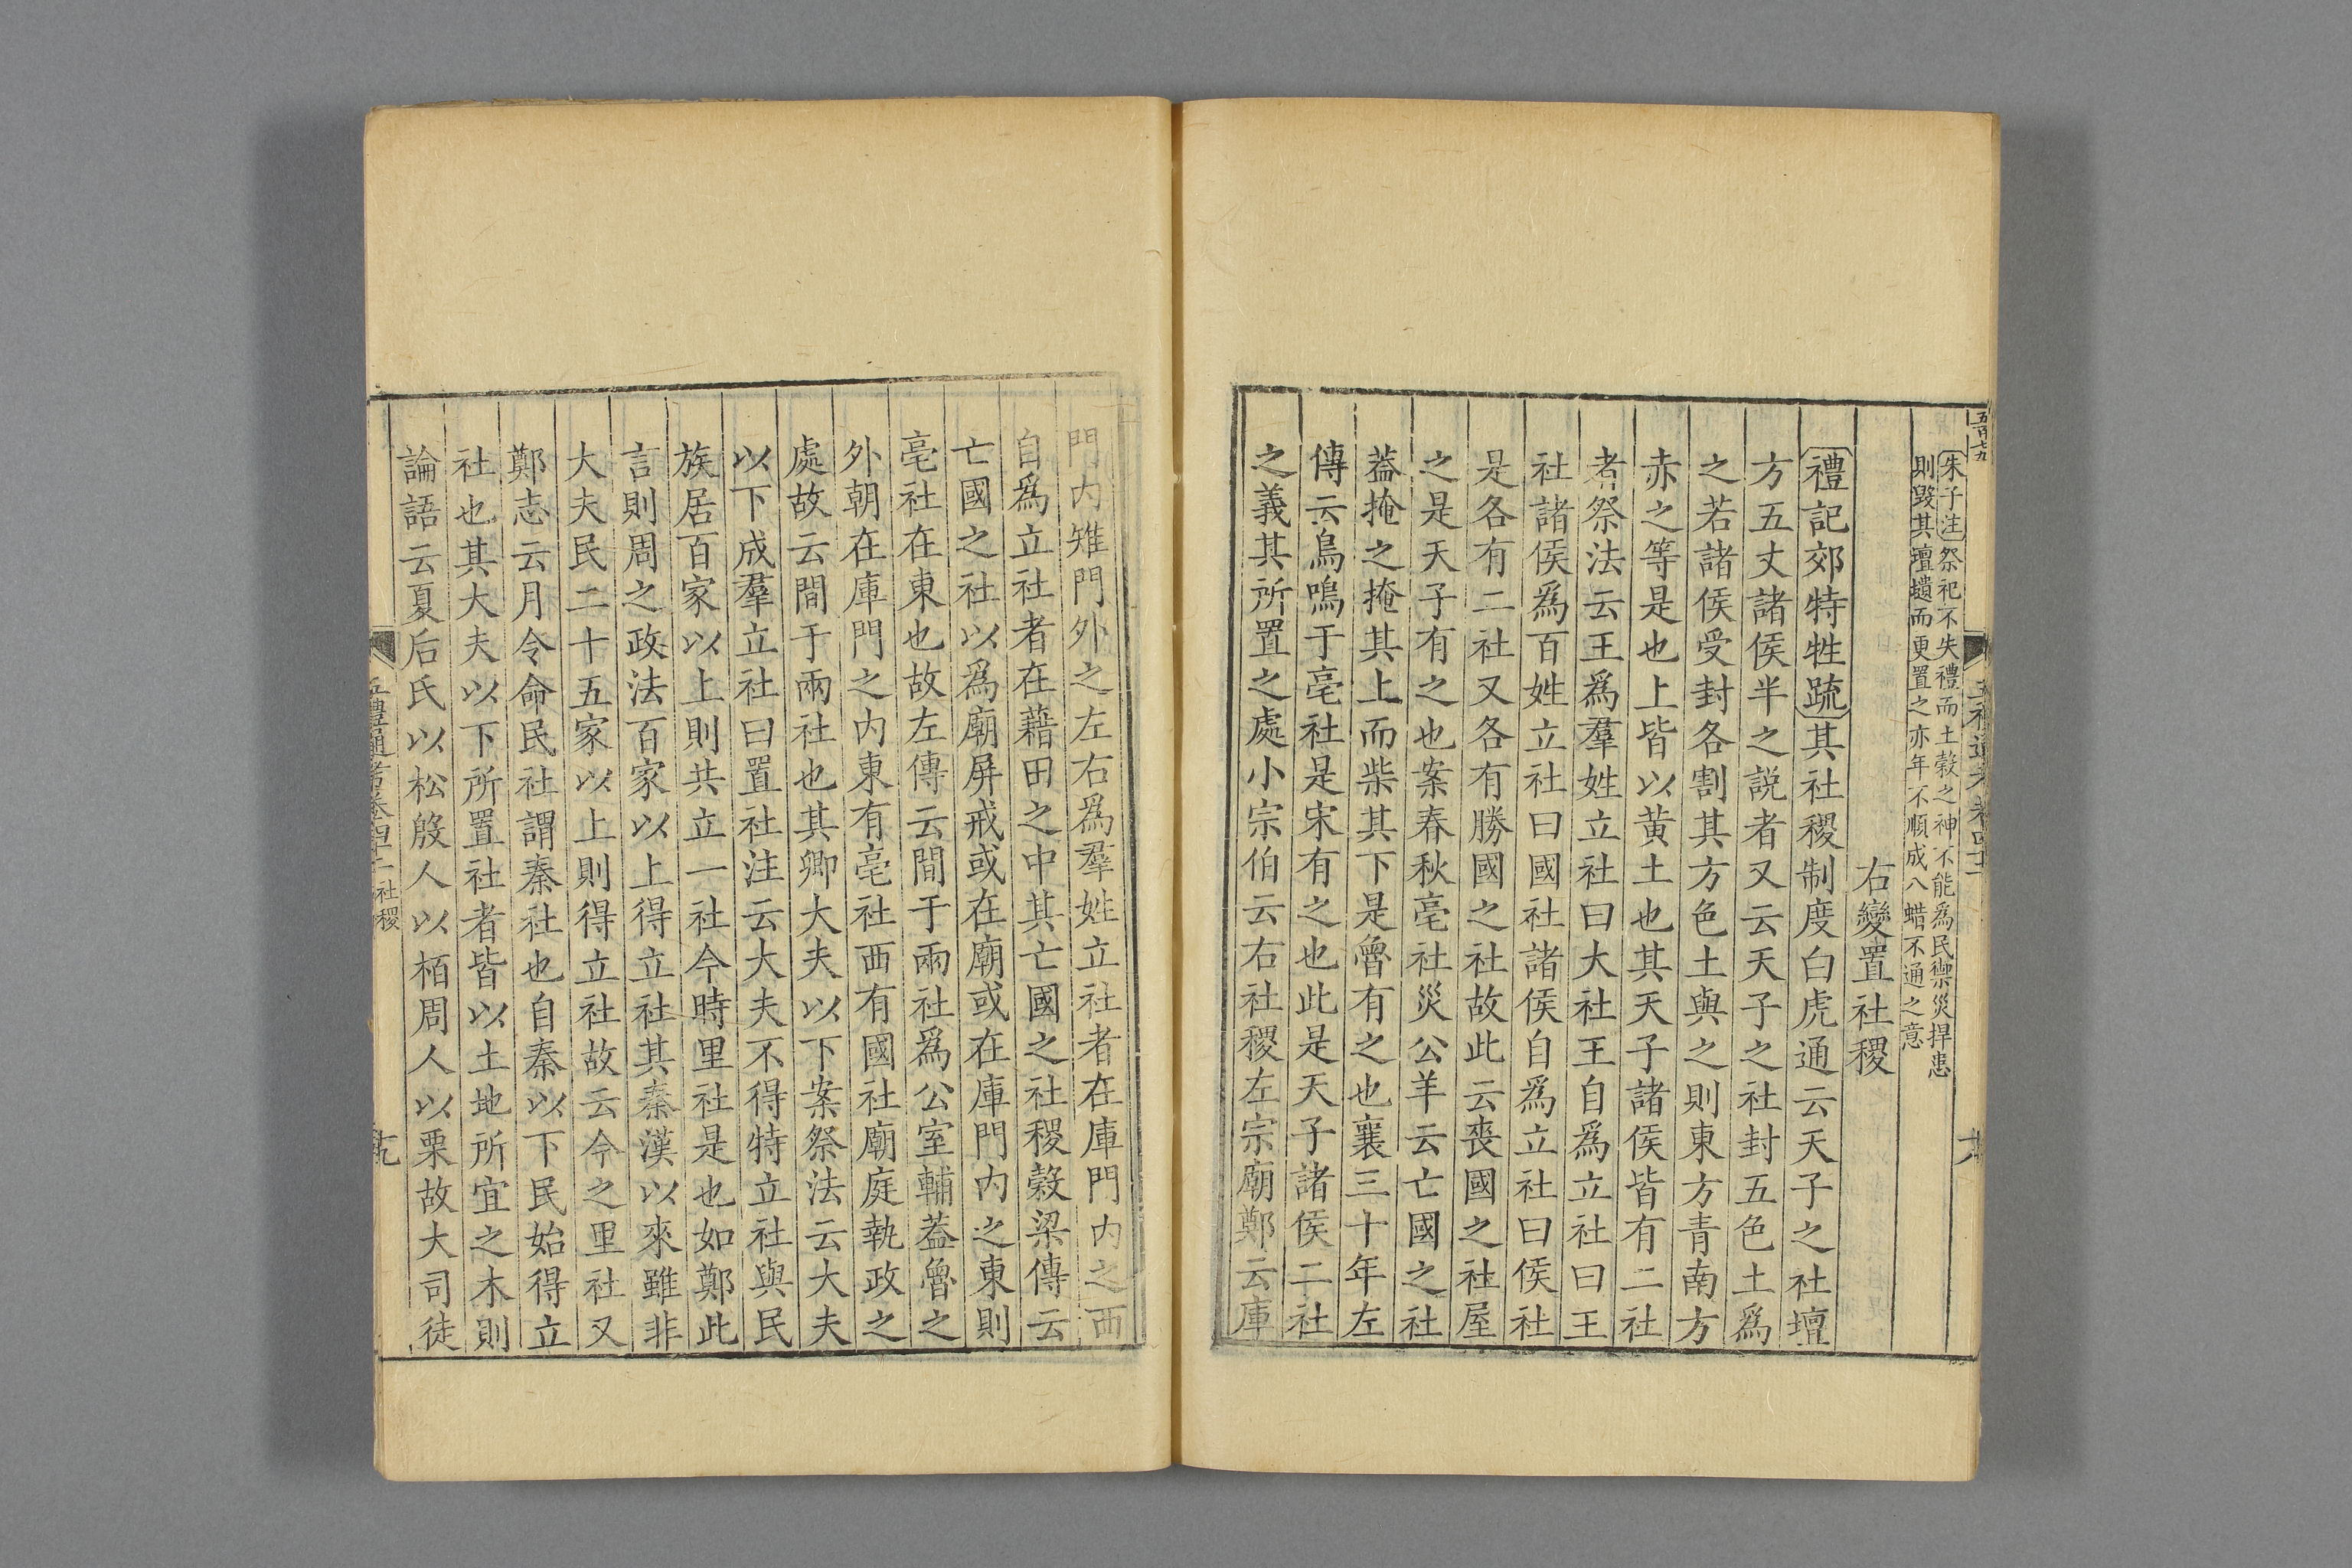 朱子注祭祀不失禮而土穀之神不能爲民禦災捍患
則毀其壇壝而更置之亦年不順成八蜡不通之意
右變置社稷
禮記郊特牲疏其社稷制度白虎通云天子之社壇
方五丈諸侯半之説者又云天子之社封五色土爲
之若諸侯受封各割其方色土與之則東方青南方
赤之等是也上皆以黄土也其天子諸侯皆有二社
者祭法云王爲羣姓立社曰大社王自爲立社曰王
社諸侯爲百姓立社曰國社諸侯自爲立社曰侯社
是各有二社又各有勝國之社故此云喪國之社屋
之是天子有之也案春秋亳社災公羊云亡國之社
葢掩之掩其上而柴其下是魯有之也襄三十年左
傳云鳥鳴于亳社是宋有之也此是天子諸侯二社
之義其所置之處小宗伯云右社稷左宗廟鄭云庫
門内雉門外之左右爲羣姓立社者在庫門内之西
自爲立社者在藉田之中其亡國之社稷穀梁傳云
亡國之社以爲廟屏戒或在廟或在庫門内之東則
亳社在東也故左傳云間于兩社爲公室輔葢魯之
外朝在庫門之内東有亳社西有國社廟庭執政之
處故云間于兩社也其卿大夫以下案祭法云大夫
以下成羣立社曰置社注云大夫不得特立社與民
族居百家以上則共立一社今時里社是也如鄭此
言則周之政法百家以上得立社其秦漢以來雖非
大夫民二十五家以上則得立社故云今之里社又
鄭志云月令命民社謂秦社也自秦以下民始得立
社也其大夫以下所置社者皆以土地所宜之木則
論語云夏后氏以松殷人以栢周人以栗故大司徒
五禮通考卷四十二 社稷